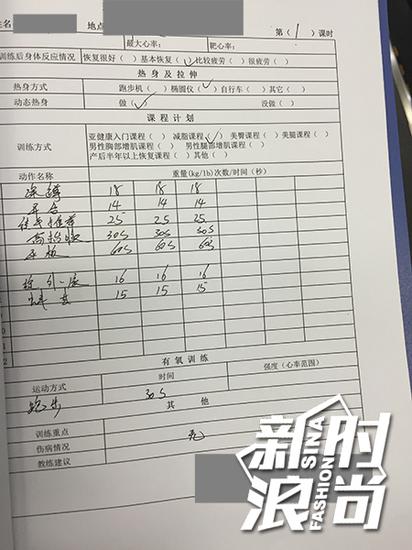 姓名 地点 第( 1 )课时
最大心率: 靶心率:
训练后身体反应情况 恢复很好( ) 基本恢复(✓) 比较疲劳( ) 很疲劳( )
热身及拉伸
热身方式 跑步机( ) 椭圆仪(✓) 自行车( ) 其它( )
动态热身 做(✓) 没做( )
课程计划
训练方式 亚健康入门课程( ) 减脂课程(✓) 美臀课程( ) 美腿课程( )
男性胸部增肌课程( ) 男性腿部增肌课程( )
产后半年以上恢复课程( ) 其他( )
动作名称 重量(kg/lb)次数/时间(秒)
深蹲 18 18 18
14 14 14
25 25 25
高抬腿 30S 30S 30S
平板 60S 60S 60S
16 16 16
15 15 15
有氧训练
运动方式 时间 强度(心率范围)
跑步 30S
其他
训练重点
伤病情况 无
教练建议
新浪时尚
SINA FASHION